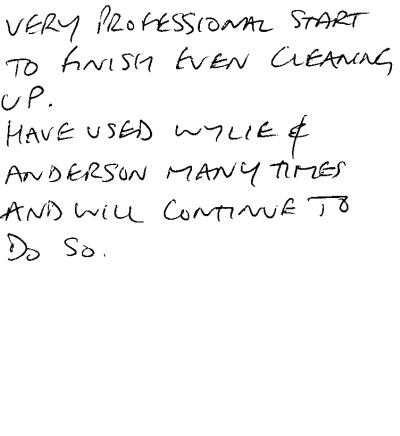 VERY PROFESSIONAL START
TO FINISH EVEN CLEANING
UP.
HAVE USED WYLIE &
ANDERSON MANY TIMES
AND WILL CONTINUE TO
DO SO.